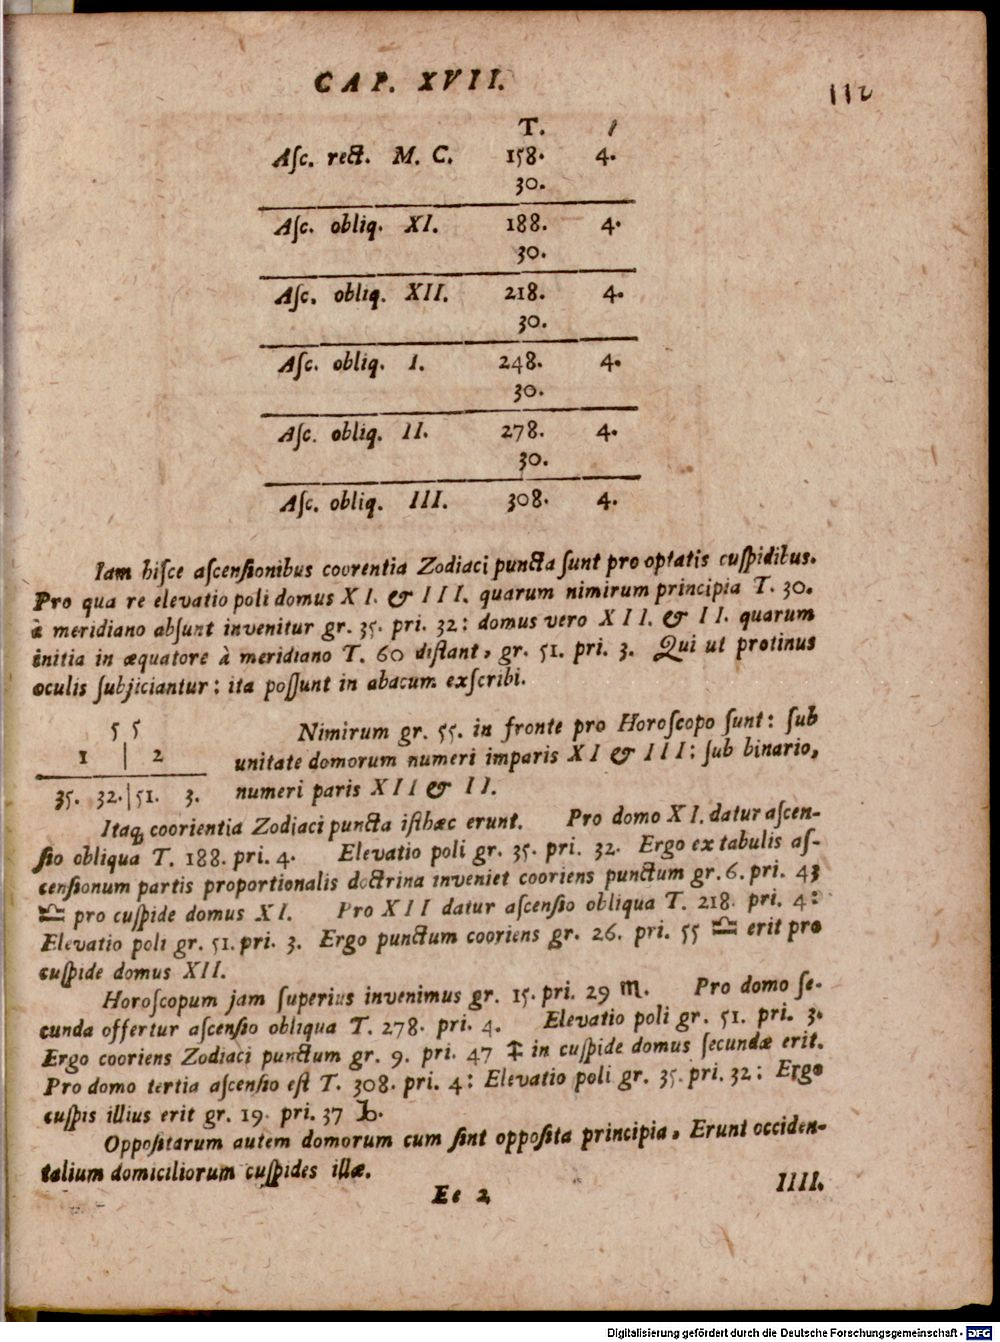 CAP. XVII.
112
T. /
Aſc. rect. M. C. 158. 4.
30.
Aſc. obliq. XI. 188. 4.
30.
Aſc. obliq. XII. 218. 4.
30.
Aſc. obliq. I. 248. 4.
30.
Aſc. obliq. II. 278. 4.
30.
Aſc. obliq. III. 308. 4.
Iam hiſce aſcenſionibus coorentia Zodiaci puncta ſunt pro optatis cuſpidibus.
Pro qua re elevatio poli domus XI. & III. quarum nimirum principia T. 30.
à meridiano abſunt invenitur gr. 35. pri. 32: domus vero XII. & II. quarum
initia in æquatore à meridiano T. 60 diſtant, gr. 51. pri. 3. Qui ut protinus
oculis ſubjiciantur: ita poſſunt in abacum exſcribi.
5 5
1 | 2
35. 32. | 51. 3.
Nimirum gr. 55. in fronte pro Horoſcopo ſunt: ſub
unitate domorum numeri imparis XI & III: ſub binario,
numeri paris XII & II.
Itaq; coorientia Zodiaci puncta iſthæc erunt. Pro domo XI. datur aſcen-
ſio obliqua T. 188. pri. 4. Elevatio poli gr. 35. pri. 32. Ergo ex tabulis aſ-
cenſionum partis proportionalis doctrina inveniet cooriens punctum gr. 6. pri. 43
♎ pro cuſpide domus XI. Pro XII datur aſcenſio obliqua T. 218. pri. 4:
Elevatio poli gr. 51. pri. 3. Ergo punctum cooriens gr. 26. pri. 55 ♎ erit pro
cuſpide domus XII.
Horoſcopum jam ſuperius invenimus gr. 15. pri. 29 ♏. Pro domo ſe-
cunda offertur aſcenſio obliqua T. 278. pri. 4. Elevatio poli gr. 51. pri. 3.
Ergo cooriens Zodiaci punctum gr. 9. pri. 47 ♐ in cuſpide domus ſecundæ erit.
Pro domo tertia aſcenſio eſt T. 308. pri. 4: Elevatio poli gr. 35. pri. 32: Ergo
cuſpis illius erit gr. 19. pri. 37 ♑.
Oppoſitarum autem domorum cum ſint oppoſita principia, Erunt occiden-
talium domiciliorum cuſpides illæ.
Ee 2
IIII.
Digitalisierung gefördert durch die Deutsche Forschungsgemeinschaft - DFG